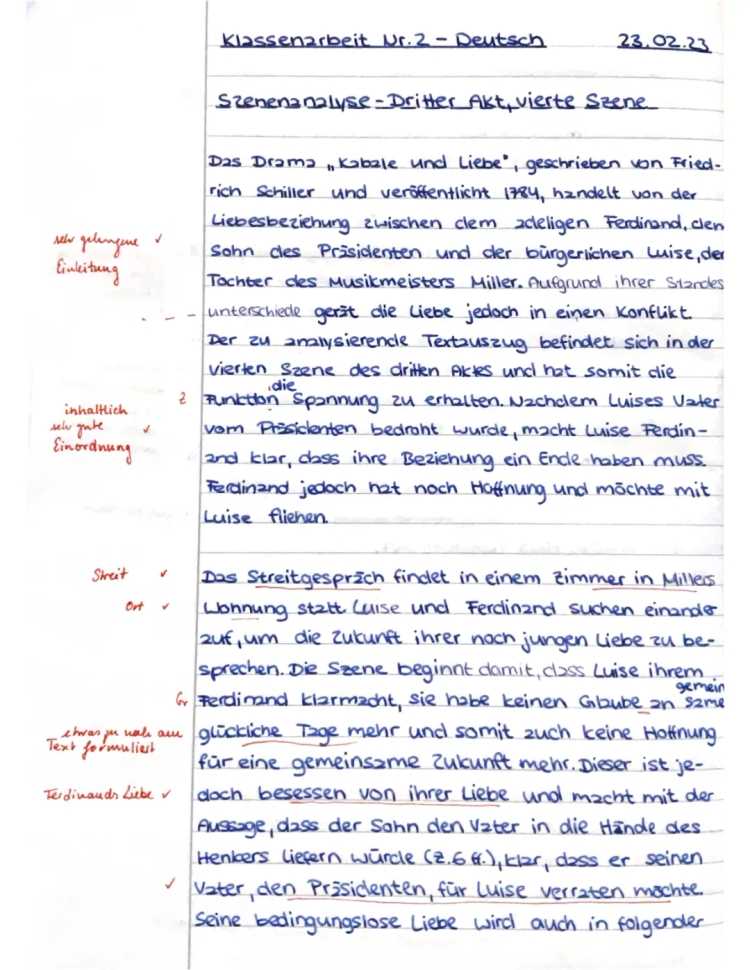 Klassenarbeit Nr. 2 - Deutsch 23.02.23
Szenenanalyse - Dritter Akt, vierte Szene
Das Drama „Kabale und Liebe", geschrieben von Fried-
rich Schiller und veröffentlicht 1784, handelt von der
Liebesbeziehung zwischen dem adeligen Ferdinand, den
sehr gelungene ✓ Sohn des Präsidenten und der bürgerlichen Luise, der
Einleitung Tochter des Musikmeisters Miller. Aufgrund ihrer Standes
unterschiede gerät die Liebe jedoch in einen Konflikt.
Der zu analysierende Textauszug befindet sich in der
vierten Szene des dritten Aktes und hat somit die
die
Z Funktion Spannung zu erhalten. Nachdem Luises Vater
inhaltlich
sehr gute ✓ vom Präsidenten bedroht wurde, macht Luise Ferdin-
Einordnung and klar, dass ihre Beziehung ein Ende haben muss.
Ferdinand jedoch hat noch Hoffnung und möchte mit
Luise fliehen.
Streit ✓ Das Streitgespräch findet in einem Zimmer in Millers
Ort ✓ Wohnung statt. Luise und Ferdinand suchen einander
auf, um die Zukunft ihrer noch jungen Liebe zu be-
sprechen. Die Szene beginnt damit, dass Luise ihrem
gemein
Gr Ferdinand klarmacht, sie habe keinen Glaube an same
etwas zu nah am glückliche Tage mehr und somit auch keine Hoffnung
Text formuliert
für eine gemeinsame Zukunft mehr. Dieser ist je-
Ferdinands Liebe ✓ doch besessen von ihrer Liebe und macht mit der
Aussage, dass der Sohn den Vater in die Hände des
Henkers liefern würde (Z. 6 ff.), klar, dass er seinen
✓ Vater, den Präsidenten, für Luise verraten möchte.
Seine bedingungslose Liebe wird auch in folgender